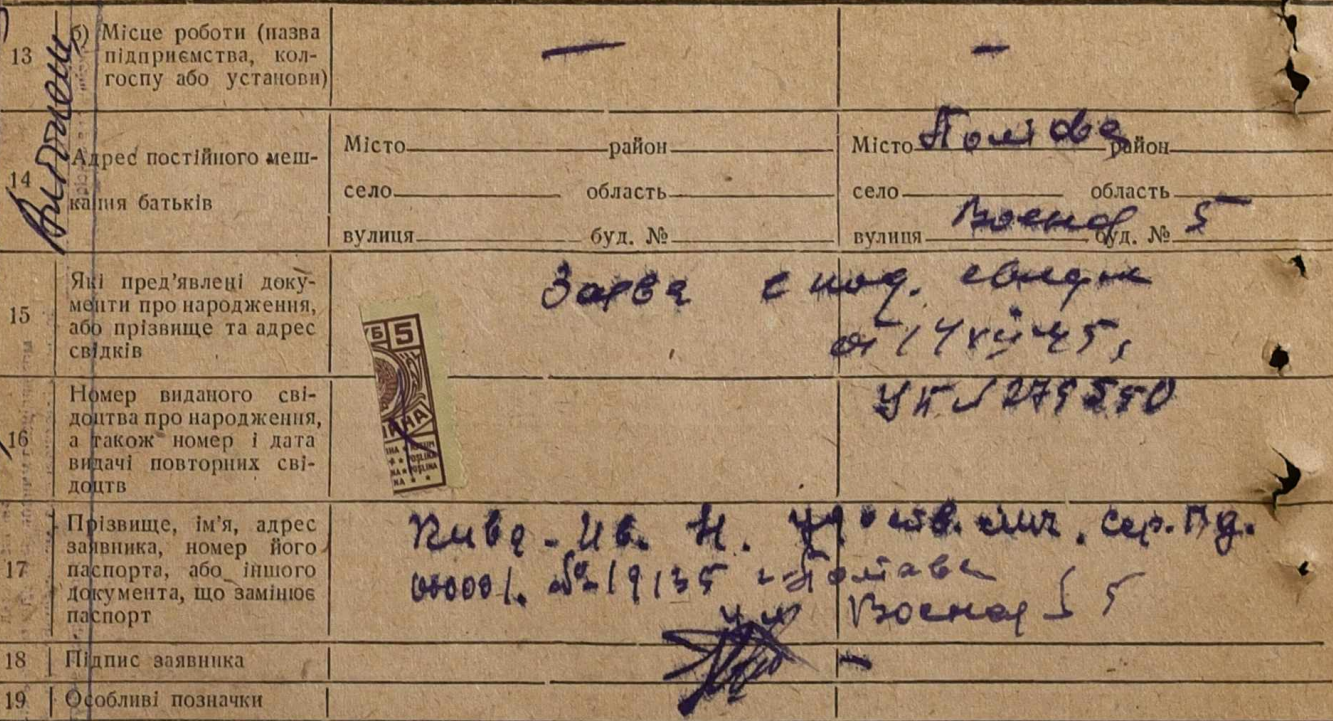 13 б) Місце роботи (назва
підприємства, кол-
госпу або установи)
— —
14 Адрес постійного меш-
кання батьків
Місто район
село область
вулиця буд. №
Місто Полтава район
село область
вулиця Военная буд. № 5
15 Які пред’явлені доку-
менти про народження,
або прізвище та адрес
свідків
Заява с
от 14 XII 45
5
16 Номер виданого сві-
доцтва про народження,
а також номер і дата
видачі повторних сві-
доцтв
17 Прізвище, ім’я, адрес
заявника, номер його
паспорта, або іншого
документа, що замінює
паспорт
Кива Ив. Н. сер. ПД.
№ 19135 Полтава
Военная 5
18 Підпис заявника
19 Особливі позначки